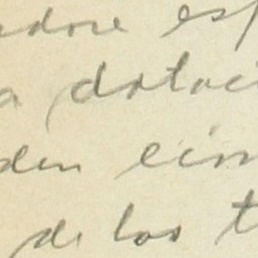 adore es
a dotaci
den cin
de los t